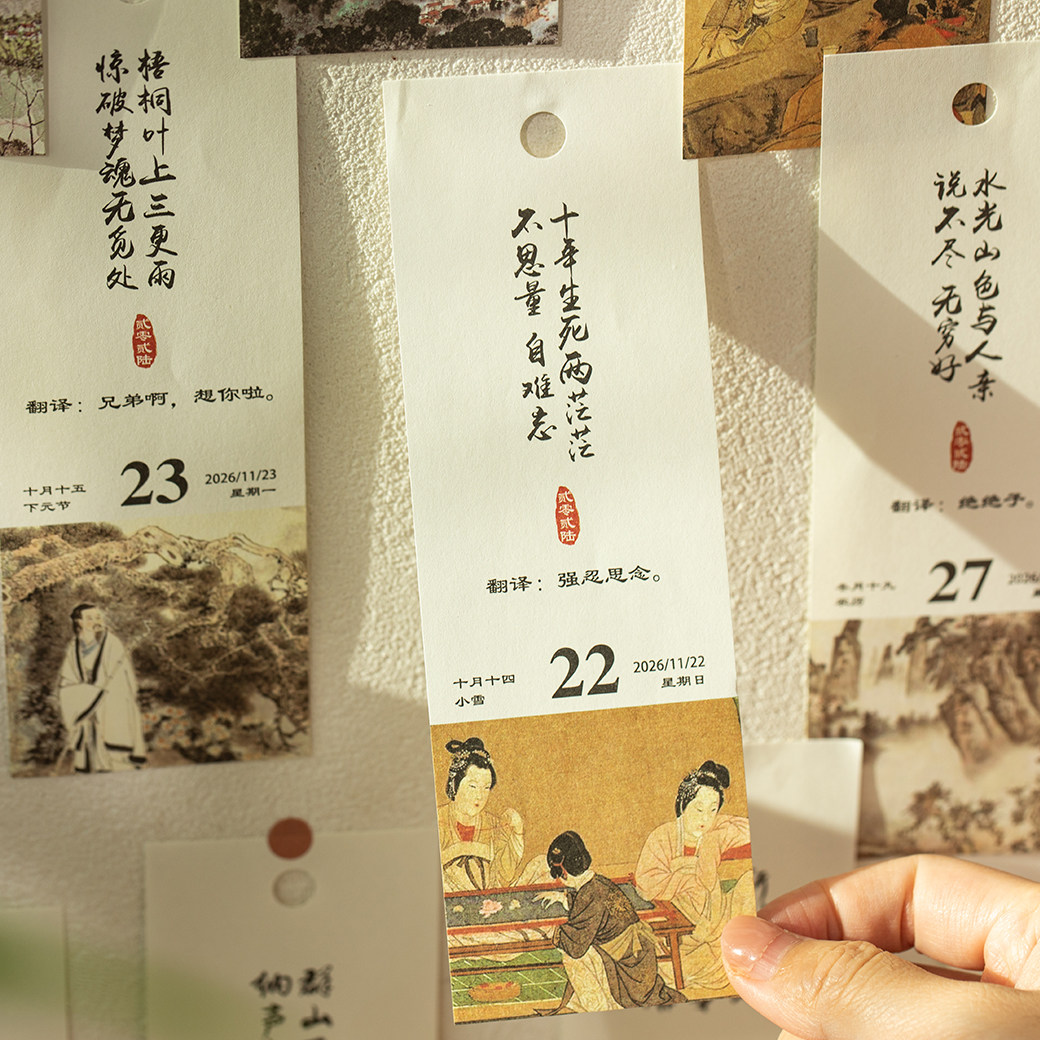 梧桐叶上三更雨
惊破梦魂无觅处
贰零贰陆
翻译：兄弟啊，想你啦。
十月十五
下元节
23
2026/11/23
星期一
十年生死两茫茫
不思量 自难忘
贰零贰陆
翻译：强忍思念。
十月十四
小雪
22
2026/11/22
星期日
水光山色与人亲
说不尽 无穷好
贰零贰陆
翻译：绝绝子。
十月十九
27
群山